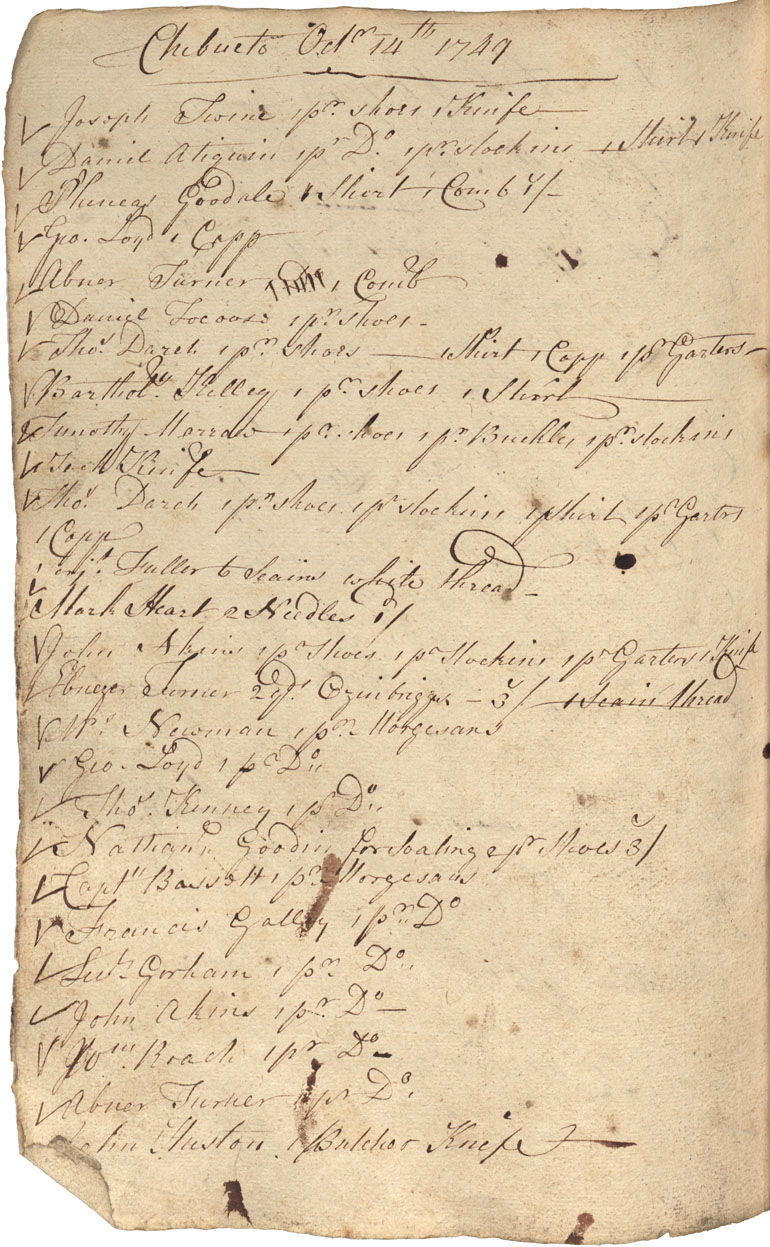 Chebucto Octr 14th 1749
Joseph Twine 1 pr shoes 1 Knife
Daniel Atiquin 1 pr Do. 1 pr stockins 1 Shirt 1 Knife
Phineas Goodale 1 Shirt 1 Comb
Geo. Loyd 1 Capp
Abner Turner 1 Comb
Daniel 1 pr shoes
Thos. Darch 1 pr shoes 1 Shirt 1 Capp 1 pr Garters
Bartholw. Kelley 1 pr shoes 1 Shirt
Timothy Marraw 1 pr shoes 1 pr Buckles 1 pr stockins
1 Knife
Thos. Darch 1 pr shoes 1 pr stockins 1 Shirt 1 pr Garters
1 Capp
Fuller 6 Scains white thread
Mark Heart 2 Needles 1/
John Akins 1 pr Shoes 1 pr Stockins 1 pr Garters 1 Knife
Ebnezer Turner 2 yds. Ozinbriggs 3/ 1 Scain thread
Newman 1 pr Morgesans
Geo. Loyd 1 pr Do.
Thos. Kenney 1 pr Do.
Nathanl. Goodin for Soaling 2 pr Shoes 3/
Capt. Bassett 1 pr Morgesans
Francis Galley 1 pr Do
Lut. Gorham 1 pr Do.
John Akins 1 pr Do
Wm. Roach 1 pr Do
Abner Turner 1 pr Do.
John Huston 1 Butcher Knife